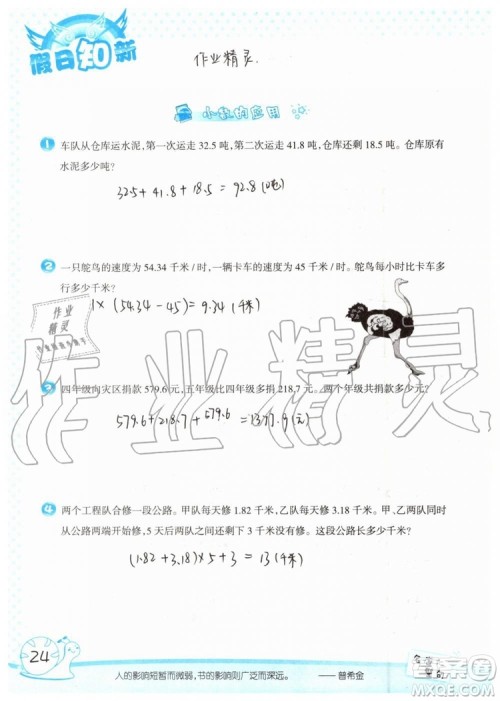 假日知新
作业精灵.
小数的应用
1 车队从仓库运水泥,第一次运走 32.5 吨,第二次运走 41.8 吨,仓库还剩 18.5 吨。仓库原有
水泥多少吨?
32.5+41.8+18.5=92.8(吨)
2 一只鸵鸟的速度为 54.34 千米/时,一辆卡车的速度为 45 千米/时。鸵鸟每小时比卡车多
行多少千米?
1×(54.34-45)=9.34(千米)
作业
精灵
作业精灵
3 四年级向灾区捐款 579.6 元,五年级比四年级多捐 218.7 元。两个年级共捐款多少元?
579.6+218.7+579.6=1377.9(元)
4 两个工程队合修一段公路。甲队每天修 1.82 千米,乙队每天修 3.18 千米。甲、乙两队同时
从公路两端开始修,5 天后两队之间还剩下 3 千米没有修。这段公路长多少千米?
(1.82+3.18)×5+3=13(千米)
24
人的影响短暂而微弱,书的影响则广泛而深远。 ——普希金
答案圈